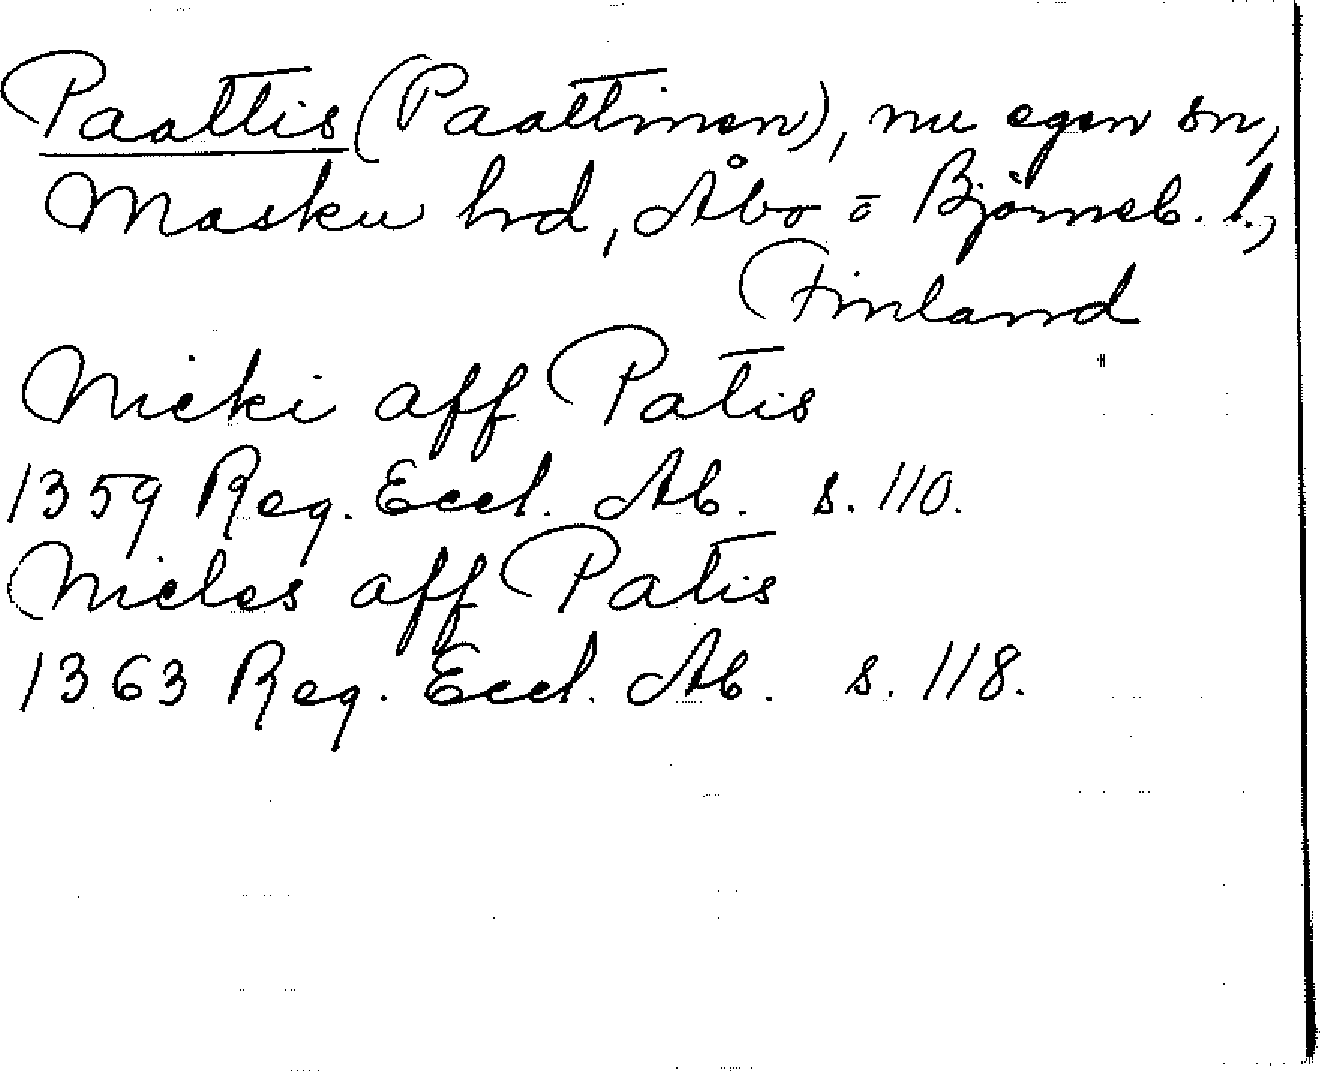 Paattis (Paattinen), nu egen sn,
Masku hrd, Åbo o Björneb. l.,
Finland
Nicki aff Patis
1359 Reg. Eccl. Ab. s. 110.
Nicles aff Patis
1363 Reg. Eccl. Ab. s. 118.